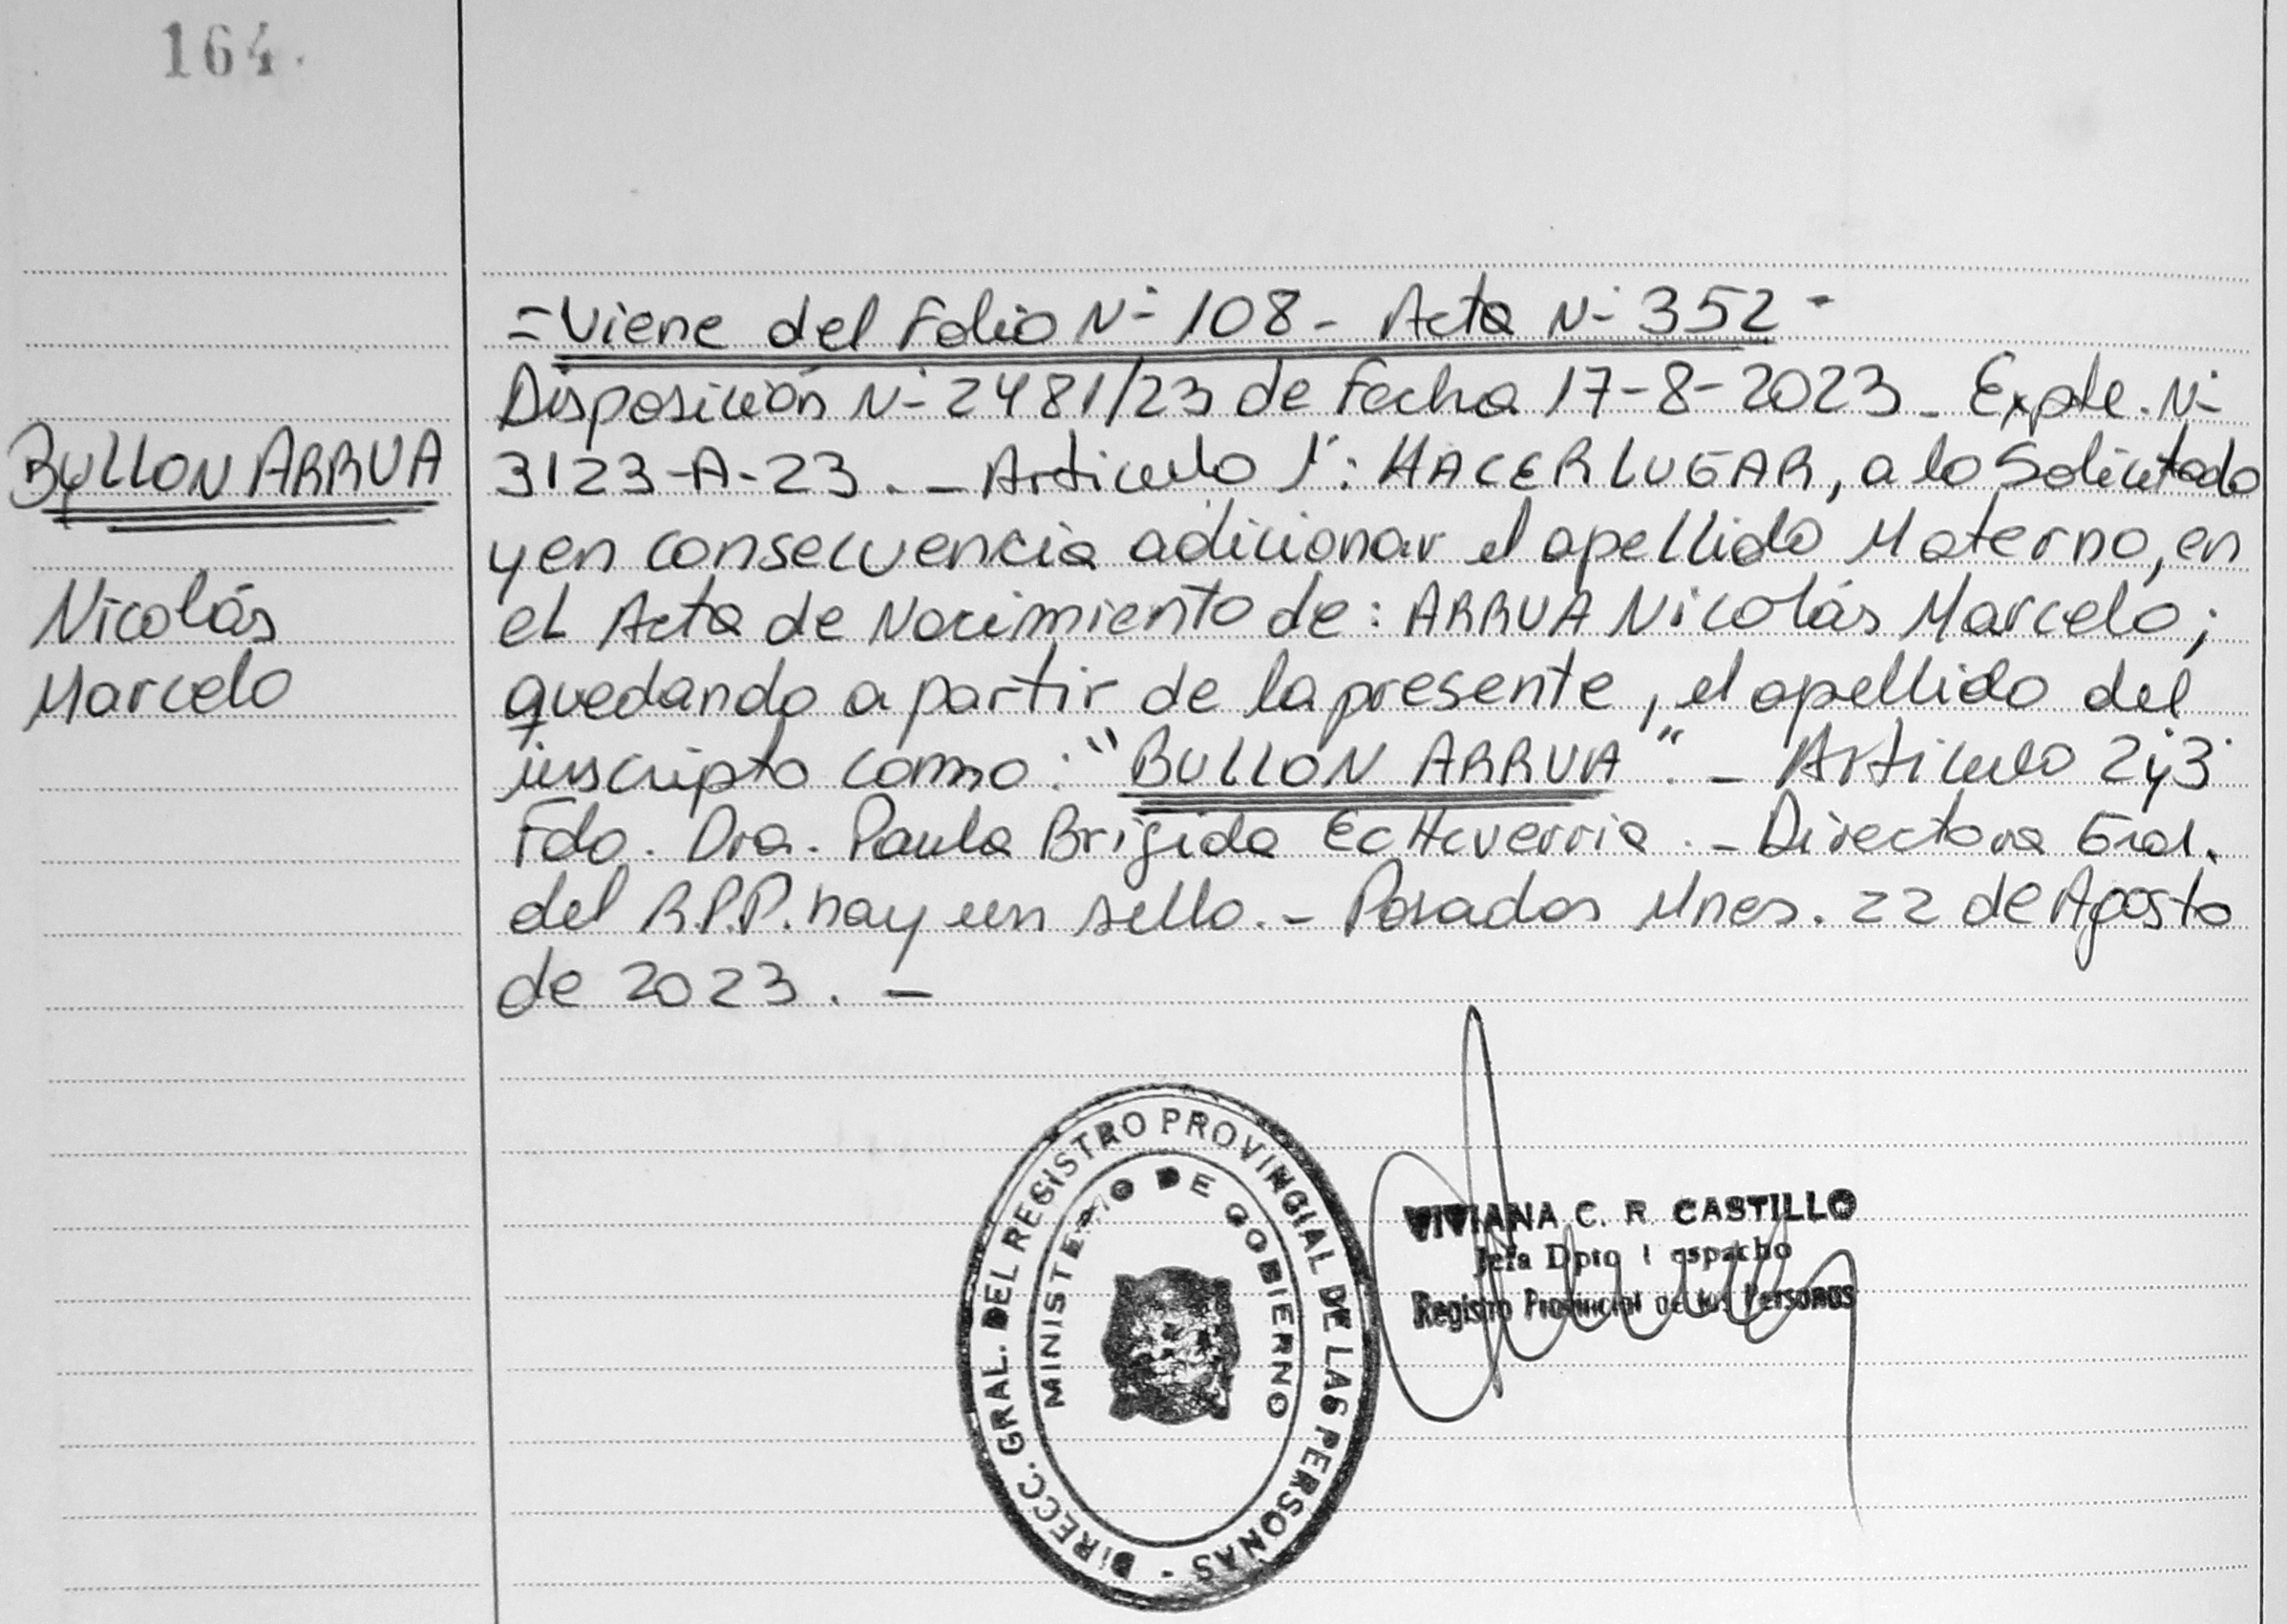 164.
=Viene del Folio N- 108 - Acta N- 352 -
Disposición N- 2481/23 de Fecha 17-8-2023 - Expte. N-
BULLON ARRUA
3123-A-23. - Articulo 1°: HACER LUGAR, a lo Solicitado
y en consecuencia adicionar el apellido Materno, en
Nicolás
el Acta de Nacimiento de: ARRUA Nicolás Marcelo;
Marcelo
quedando a partir de la presente, el apellido del
inscripto como: "BULLON ARRUA". - Articulo 2°y3°
Fdo. Dra. Paula Brigida Echeverria. - Directora Gral.
del R.P.P. hay un sello. - Posadas Mnes. 22 de Agosto
de 2023. -
DIRECC. GRAL. DEL REGISTRO PROVINCIAL DE LAS PERSONAS -
MINISTERIO DE GOBIERNO
VIVIANA C. R. CASTILLO
Jefa Dpto espacho
Registro Provincial de las Personas